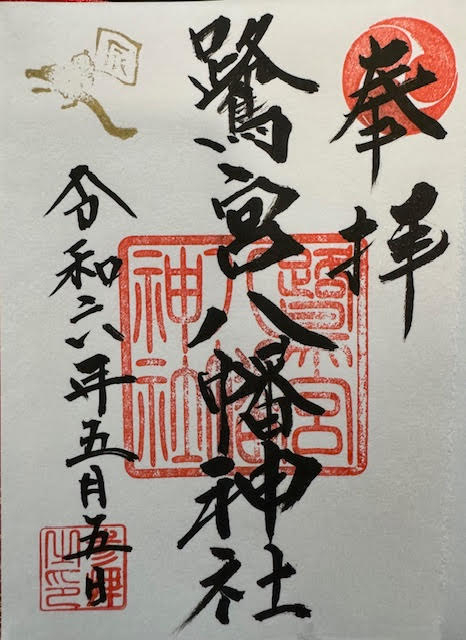 奉拝
鷺宮八幡神社
令和六年五月五日
鷺宮八幡神社
参拝之印